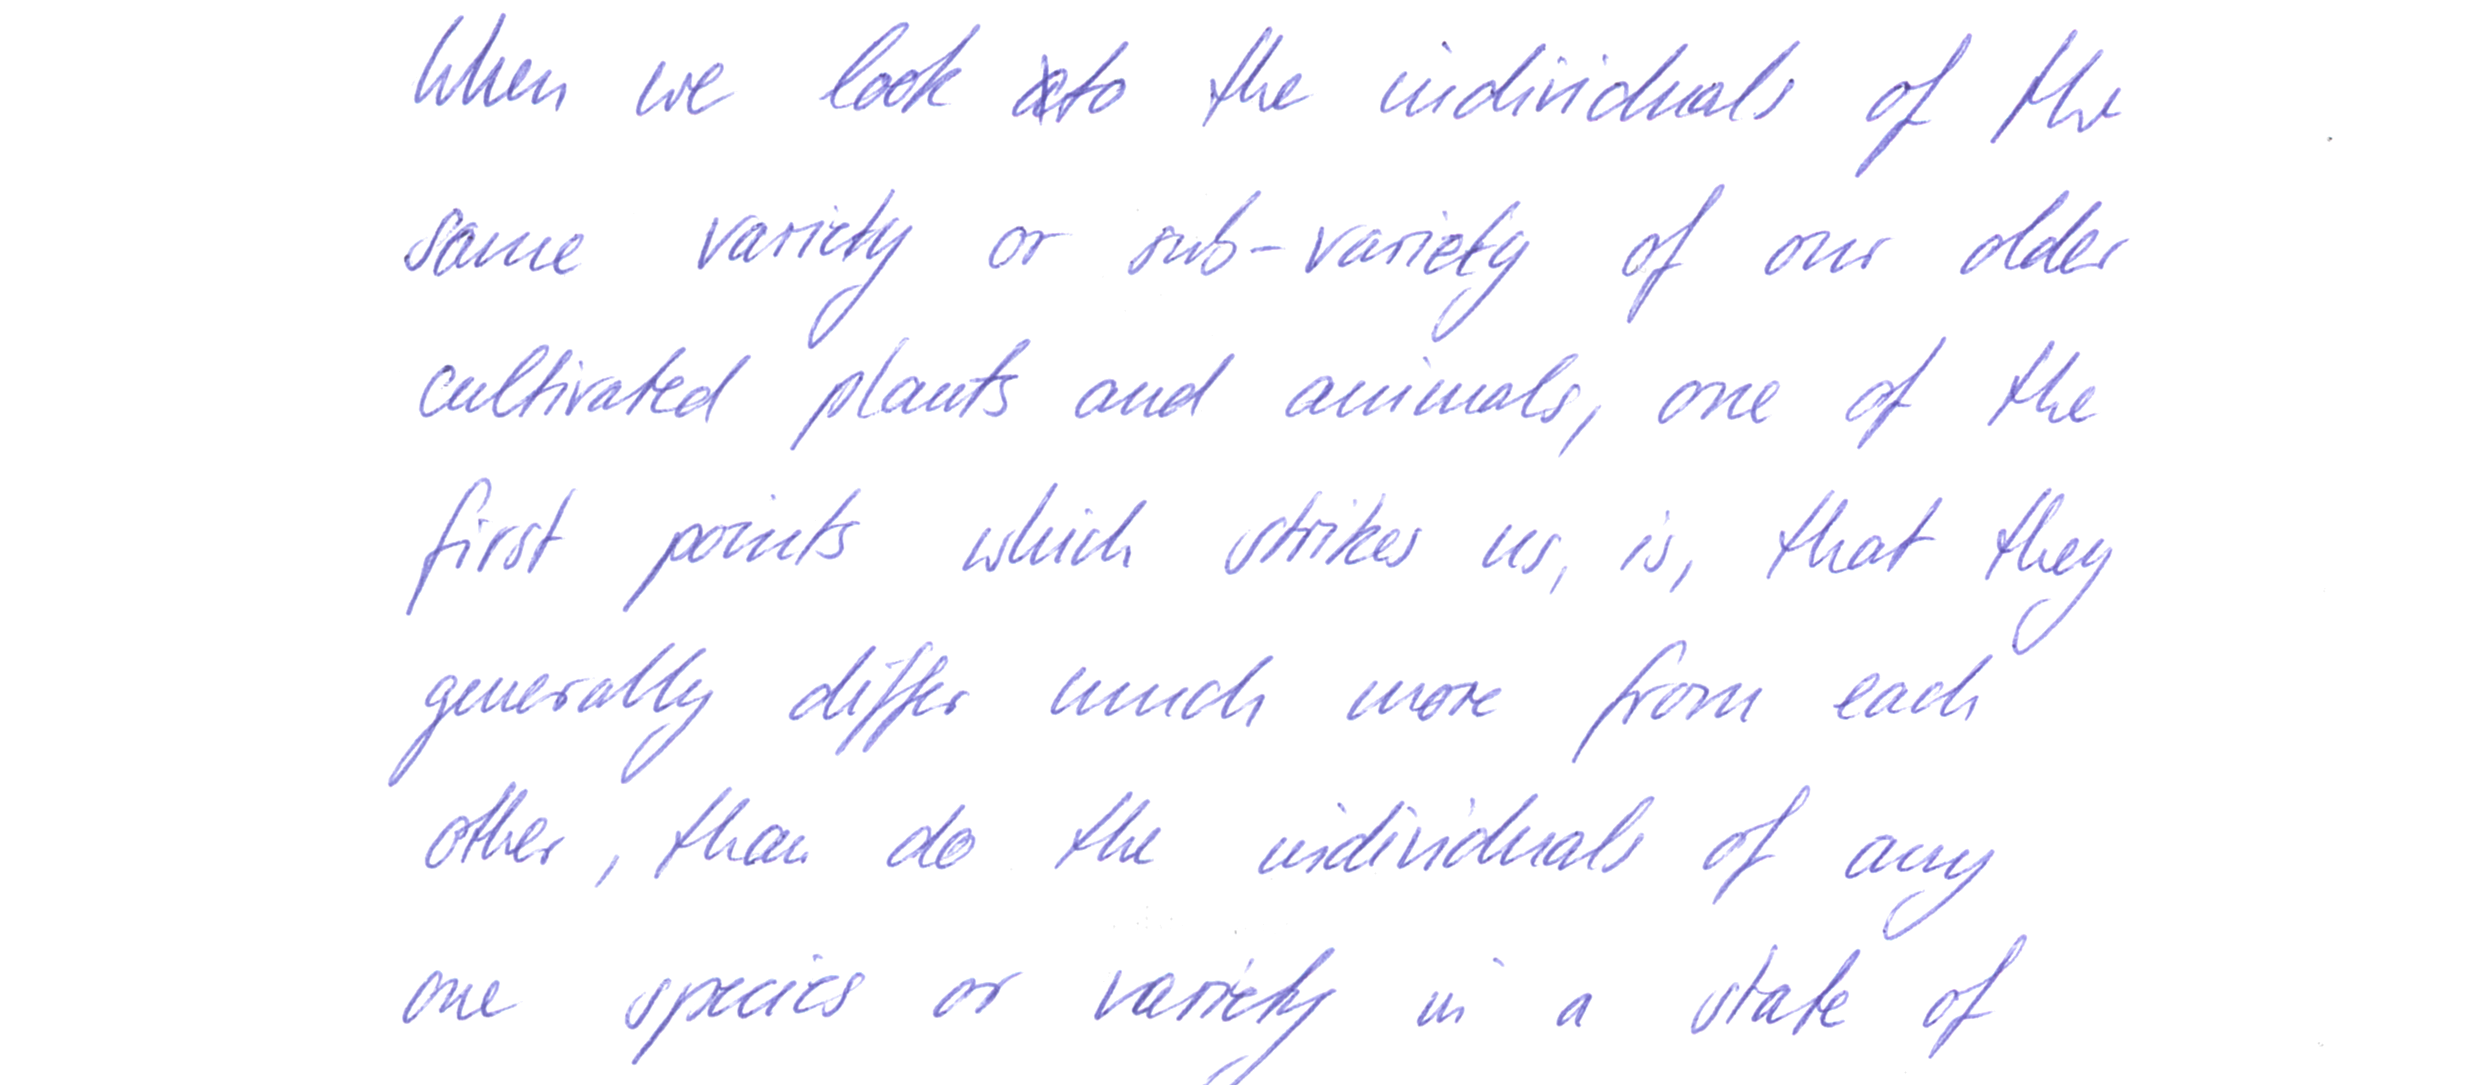 When we look to the individuals of the
same variety or sub-variety of our older
cultivated plants and animals, one of the
first points which strikes us, is, that they
generally differ much more from each
other, than do the individuals of any
one species or variety in a state of